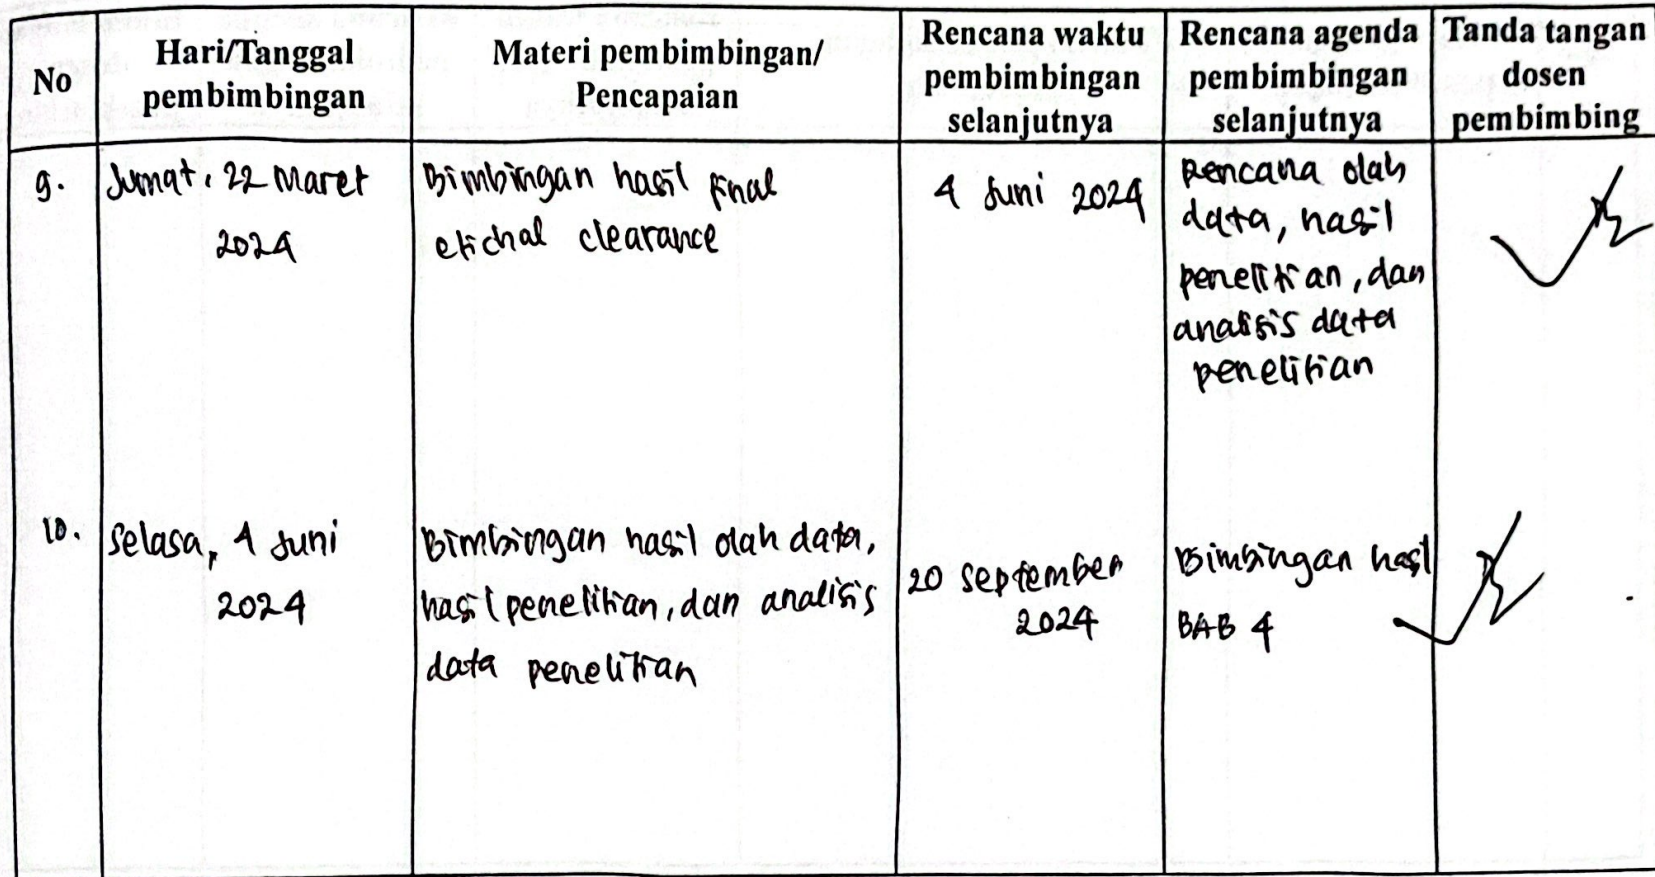 No
Hari/Tanggal
pembimbingan
Materi pembimbingan/
Pencapaian
Rencana waktu
pembimbingan
selanjutnya
Rencana agenda
pembimbingan
selanjutnya
Tanda tangan
dosen
pembimbing
9.
Jumat, 22 Maret
2024
Bimbingan hasil final
etichal clearance
4 Juni 2024
Rencana olah
data, hasil
penelitian, dan
analisis data
penelitian
10.
Selasa, 4 Juni
2024
Bimbingan hasil olah data,
hasil penelitian, dan analisis
data penelitian
20 September
2024
Bimbingan hasil
BAB 4